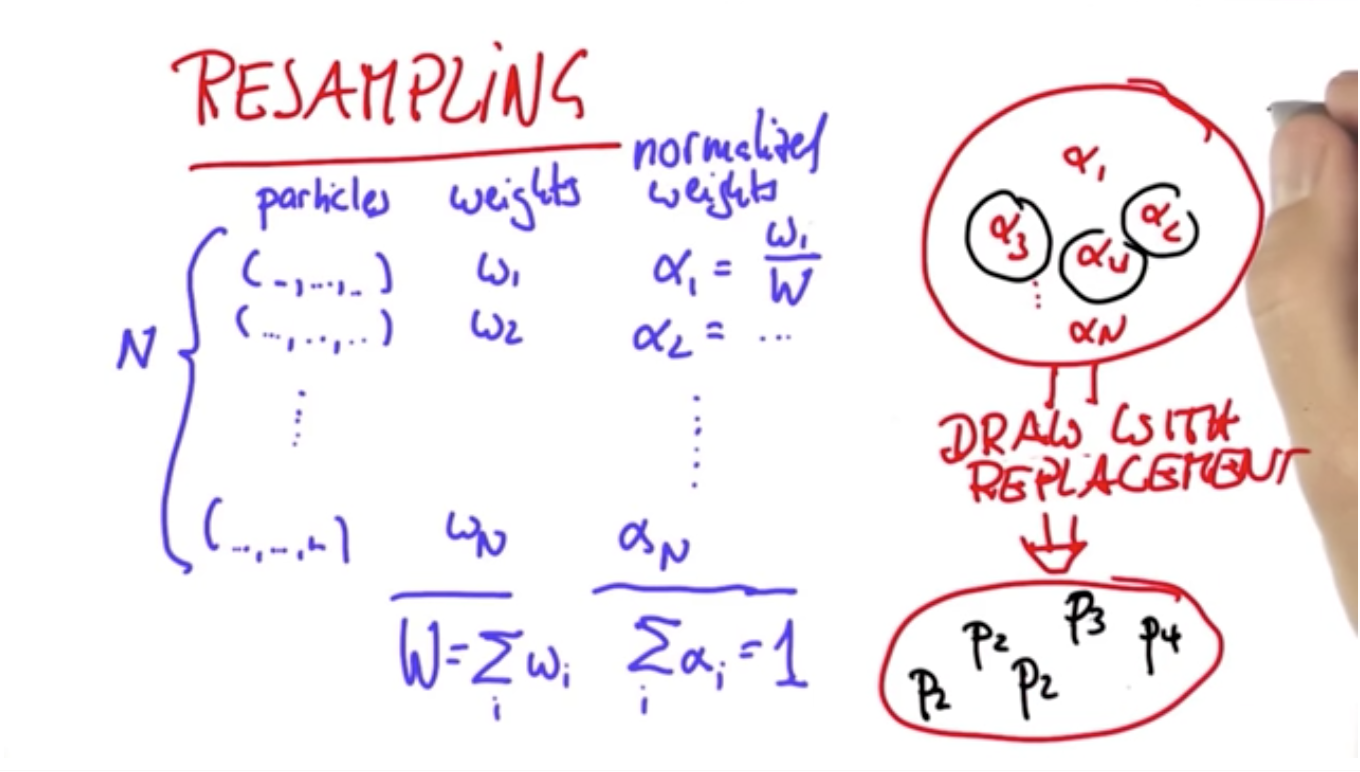 RESAMPLING
particles weights normalized weights
N { (..,...,..) ω1 α1 = ω1/W
(...,..,..) ω2 α2 = ...
⋮ ⋮
(...,...,..) ωN αN
W=∑i ωi ∑i αi = 1
α1
α3 α4 α2
⋮
αN
DRAW WITH
REPLACEMENT
p2 p2 p2 p3 p4